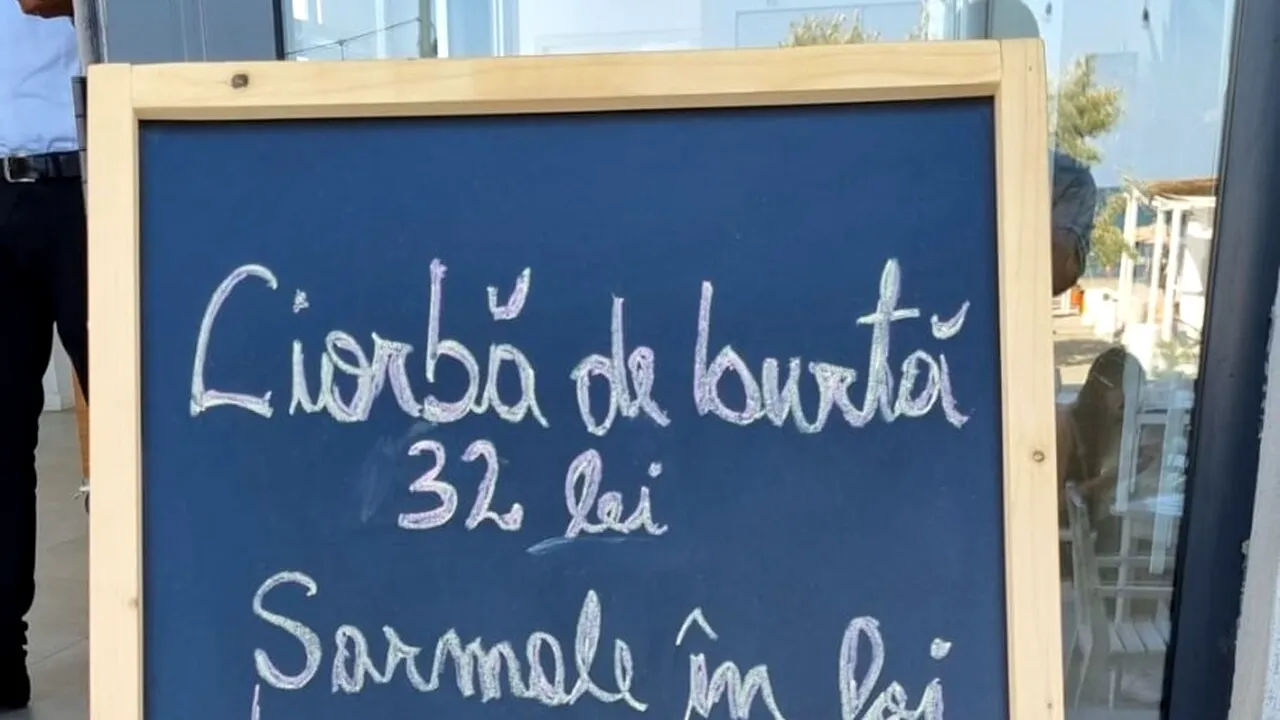 Ciorbă de burtă
32 lei
Sarmale în foi